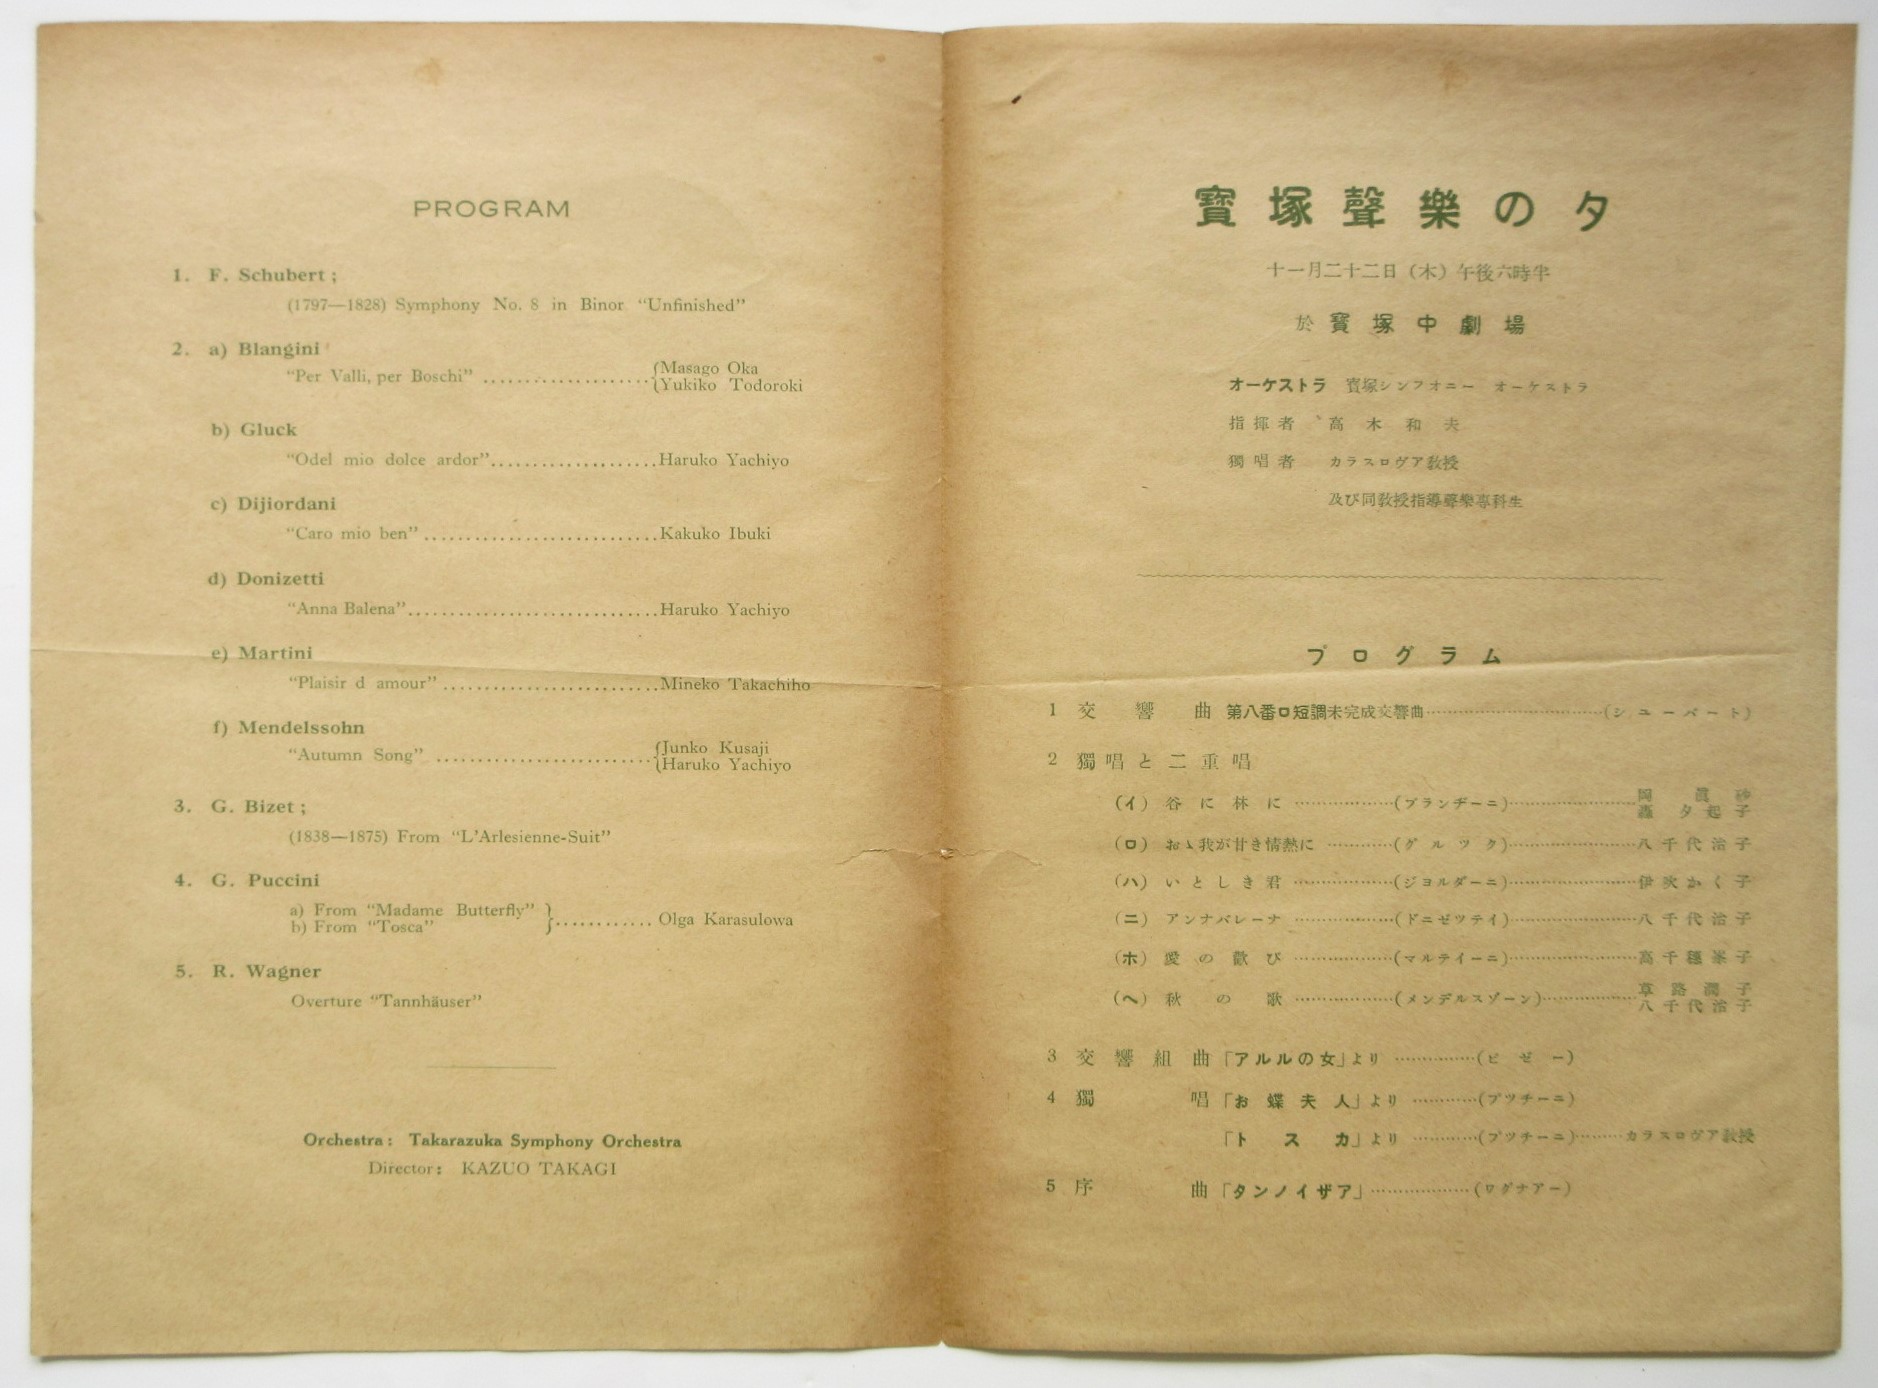 PROGRAM
1. F. Schubert ;
(1797—1828) Symphony No. 8 in Binor “Unfinished”
2. a) Blangini
“Per Valli, per Boschi” .................... {Masago Oka
{Yukiko Todoroki
b) Gluck
“Odel mio dolce ardor”....................Haruko Yachiyo
c) Dijiordani
“Caro mio ben” ...........................Kakuko Ibuki
d) Donizetti
“Anna Balena”.............................Haruko Yachiyo
e) Martini
“Plaisir d amour” .........................Mineko Takachiho
f) Mendelssohn
“Autumn Song” ......................... {Junko Kusaji
{Haruko Yachiyo
3. G. Bizet ;
(1838—1875) From “L'Arlesienne-Suit”
4. G. Puccini
a) From “Madame Butterfly”
b) From “Tosca” }............ Olga Karasulowa
5. R. Wagner
Overture “Tannhäuser”
Orchestra : Takarazuka Symphony Orchestra
Director : KAZUO TAKAGI
寶塚聲樂の夕
十一月二十二日（木）午後六時半
於 寶塚中劇場
オーケストラ 寶塚シンフオニー オーケストラ
指揮者 高木和夫
獨唱者 カラスロヴア敎授
及び同敎授指導聲樂專科生
プログラム
1 交響曲 第八番ロ短調未完成交響曲……………（シユーバート）
2 獨唱と二重唱
（イ）谷に林に………（ブランヂーニ）………岡眞砂
轟夕起子
（ロ）おゝ我が甘き情熱に………（グルツク）………八千代治子
（ハ）いとしき君………（ジヨルダーニ）………伊吹かく子
（ニ）アンナバレーナ………（ドニゼツテイ）………八千代治子
（ホ）愛の歡び………（マルテイーニ）………高千穗峯子
（ヘ）秋の歌………（メンデルスゾーン）………草路潤子
八千代治子
3 交響組曲「アルルの女」より………（ビゼー）
4 獨唱「お蝶夫人」より………（プツチーニ）
「トスカ」より………（プツチーニ）………カラスロヴア敎授
5 序曲「タンノイザア」………（ワグナアー）